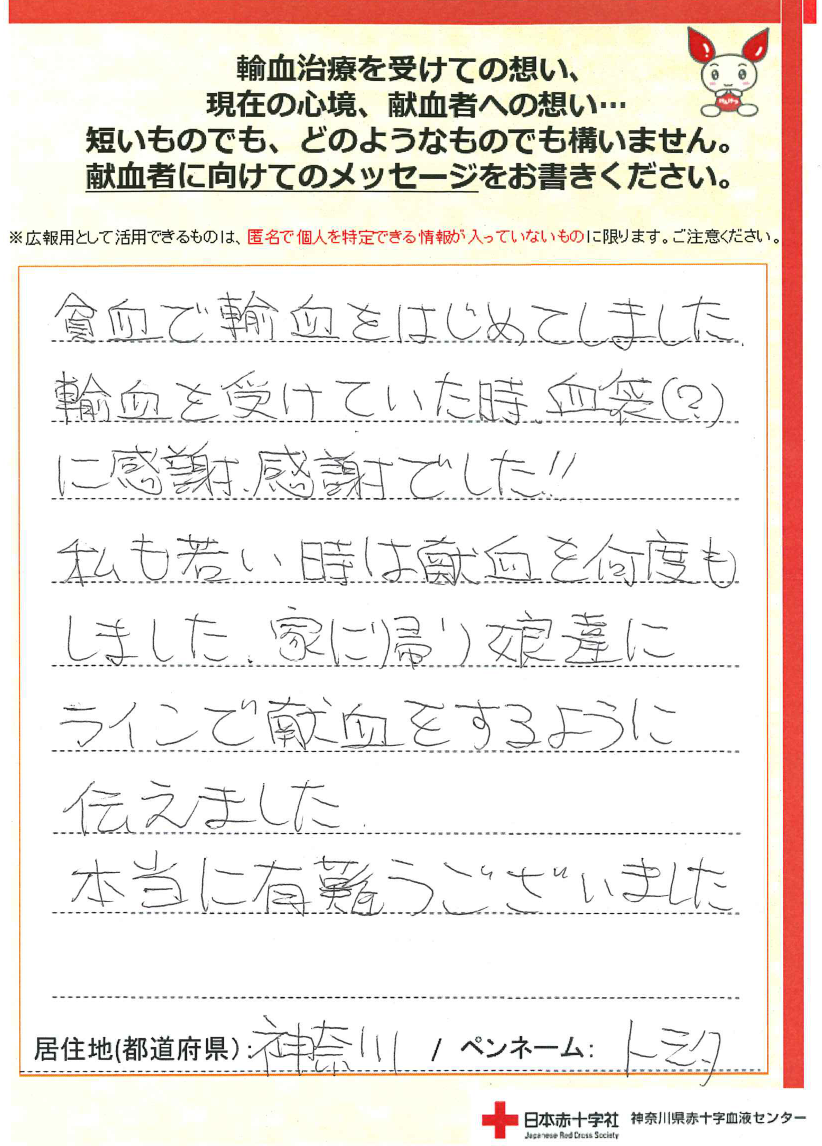 輸血治療を受けての想い、
現在の心境、献血者への想い…
短いものでも、どのようなものでも構いません。
献血者に向けてのメッセージをお書きください。
※広報用として活用できるものは、匿名で個人を特定できる情報が入っていないものに限ります。ご注意ください。
貧血で輸血をはじめてしました.
輸血を受けていた時.血袋(?)
に感謝.感謝でした!!
私も若い時は献血を何度も
しました.家に帰り娘達に
ラインで献血をするように
伝えました.
本当に有難うございました
居住地(都道府県):神奈川 / ペンネーム: トミタ
日本赤十字社 神奈川県赤十字血液センター
Japanese Red Cross Society